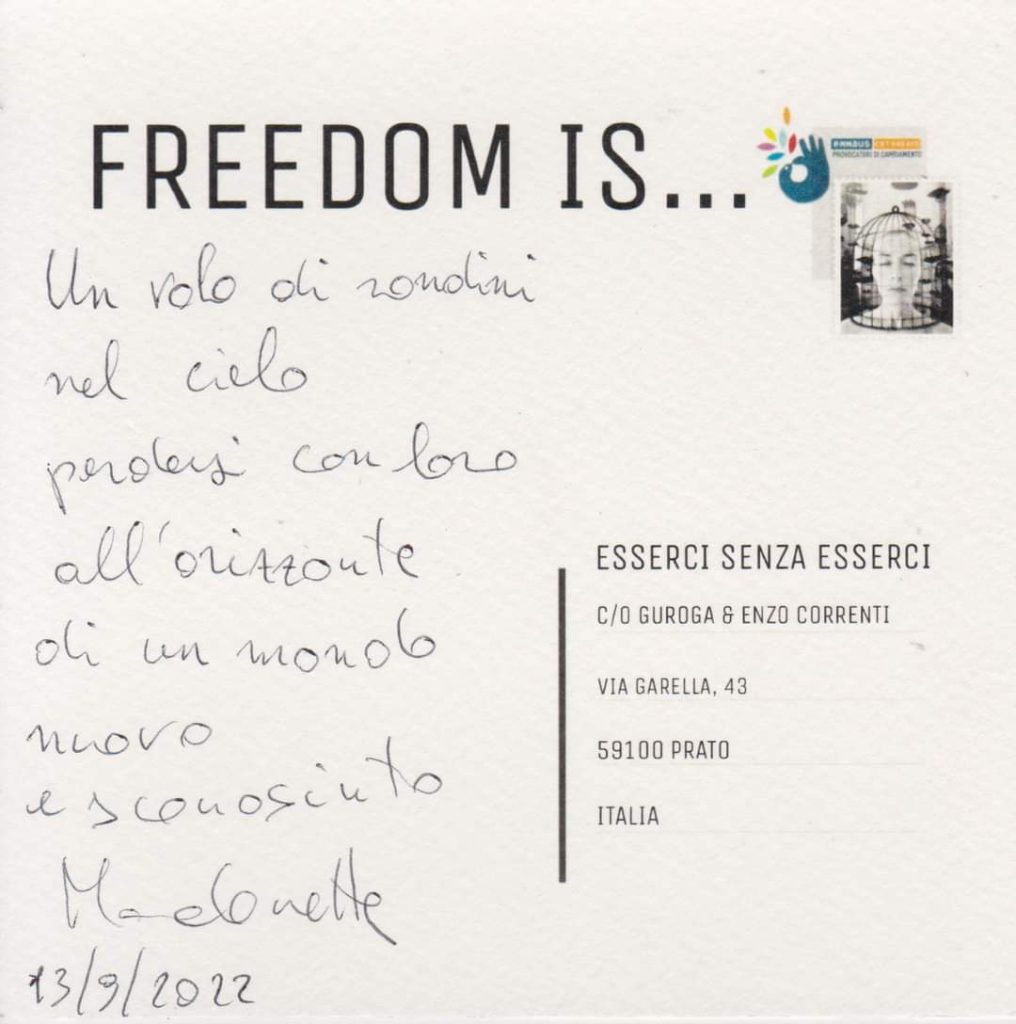 FREEDOM IS...
PROVOCATORI DI CAMBIAMENTO
Un volo di rondini
nel cielo
perdersi con loro
all'orizzonte
di un mondo
nuovo
e sconosciuto
13/9/2022
ESSERCI SENZA ESSERCI
C/O GUROGA & ENZO CORRENTI
VIA GARELLA, 43
59100 PRATO
ITALIA